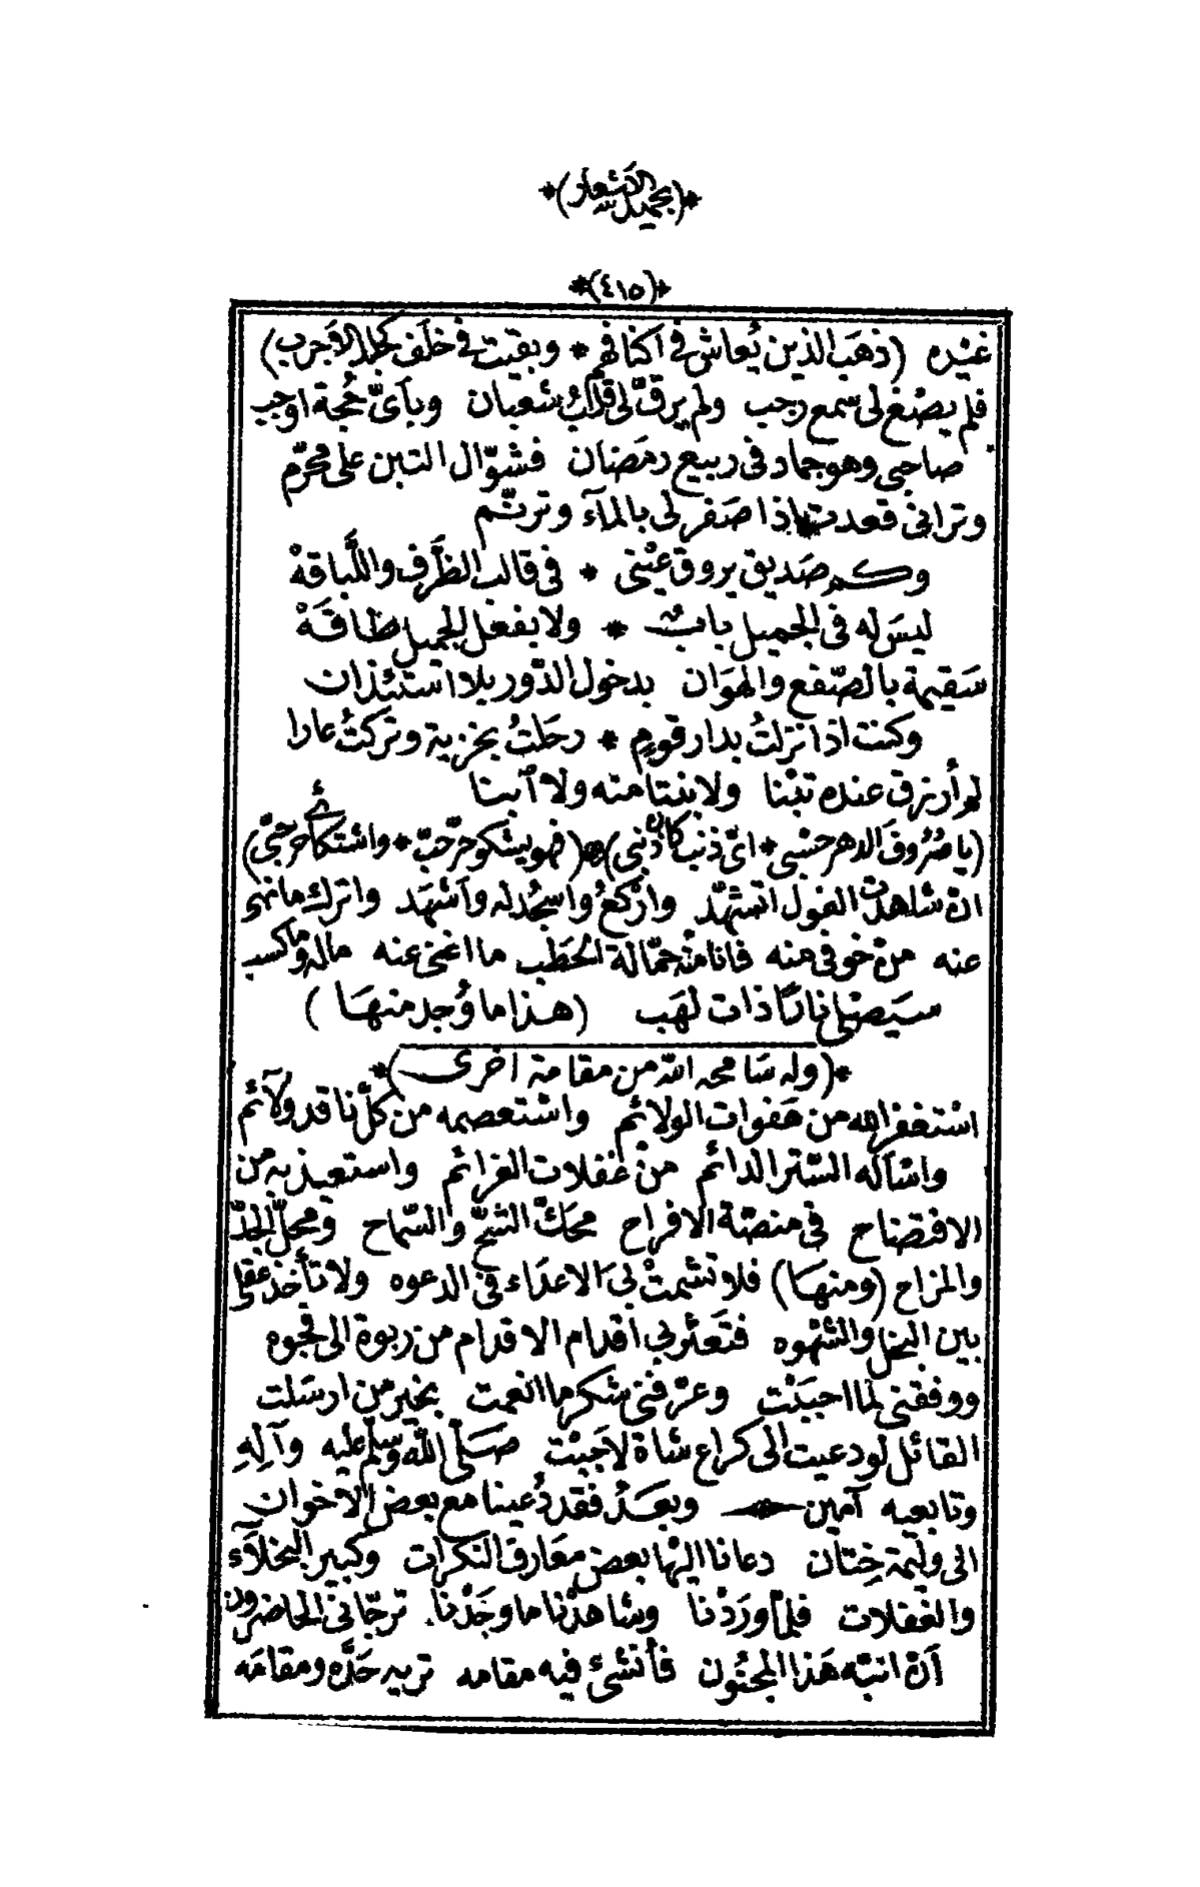 *(بجميل الأشعار)*
*(٤١٥)*
غيره (ذهب الذين يُعاش في اكنافهم * وبقيت في خلف كجلد الاجرب)
فلم يصغ لى سمع رجب ولم يرق لى قلب شعبان وبأىّ حُجة اوجب
صاحبى وهو جماد فى ربيع رمضان فشوّال التبن على محرّم
وترانى قعدت اذا صفر لى بالمآء وترنّم
وكم صَديق يروق عيْنى * فى قالب الظَّرف واللَّباقهْ
ليسَ له فى الجميل بابٌ * ولا بفعل الجميل طاقَهْ
سَقيمة بالصّفع والهوَان بدخول الدّور بلا استئذان
وكنت اذا نزلتُ بدار قومٍ * رحَلتُ بخزية وتركتُ عارا
لم أرزق عنده تبْنا ولا بنتا منه ولا آبينا
(يا صُرُوفَ الدهر حسْبى * اىّ ذنب كان ذنْبى) (فهو يشكو حرّ حبّ * واشتكائى حرّ حبّى)
ان شاهدت الفول اتشهّد واركعُ واسجُد له واَشهَد واترك ما نهى
عنه من خوفى منه فانا منْه حمّالة الحَطَب ما اغنى عنه ماله وما كسب
سيَصْلى نارًا ذات لهَب (هذا ما وُجد منهَا)
*(وله سَامحه الله من مقامة اخرى)*
استغفر الله من هَفوات الولائم واسْتعصمه من كل أناقد ولآئم
واسْاَله السّتر الدائم منْ غفلات العزائم واستعيذ به من
الافتضاح فى منصّة الافراح محَكّ الشحّ والسّماح ومحلّ الجدّ
والمزاح (ومنهَا) فلا تشمتْ بى الاعدَاء فى الدعوه ولا تأخذ عقلى
بين البخل والشهْوه فتَعثر بى اقدام الاقدام من ربوة الى فجوه
ووفقنى لما احببْت وعرّفنى شكر ما انعمت بخير من ارسَلت
القائل لو دعيت الى كراع شاة لاَجبْت صَلّى الله وسلم عليه وآلِهِ
وتابعيه آمين وبعَدُ فقد دُعينا مع بعض الاخوان
الى وليمة خِتان دعانا اليْها بعض معَارف النكرات وكبير البخلآء
والغفلات فلمّا ورَدْنا وشاهدْنا ما وجَدْنا. ترجّانى الحاضرون
اَنْ انبّه هَذا المجنُون فأنشئ فيه مقامه تريه حَدّه ومقامَه